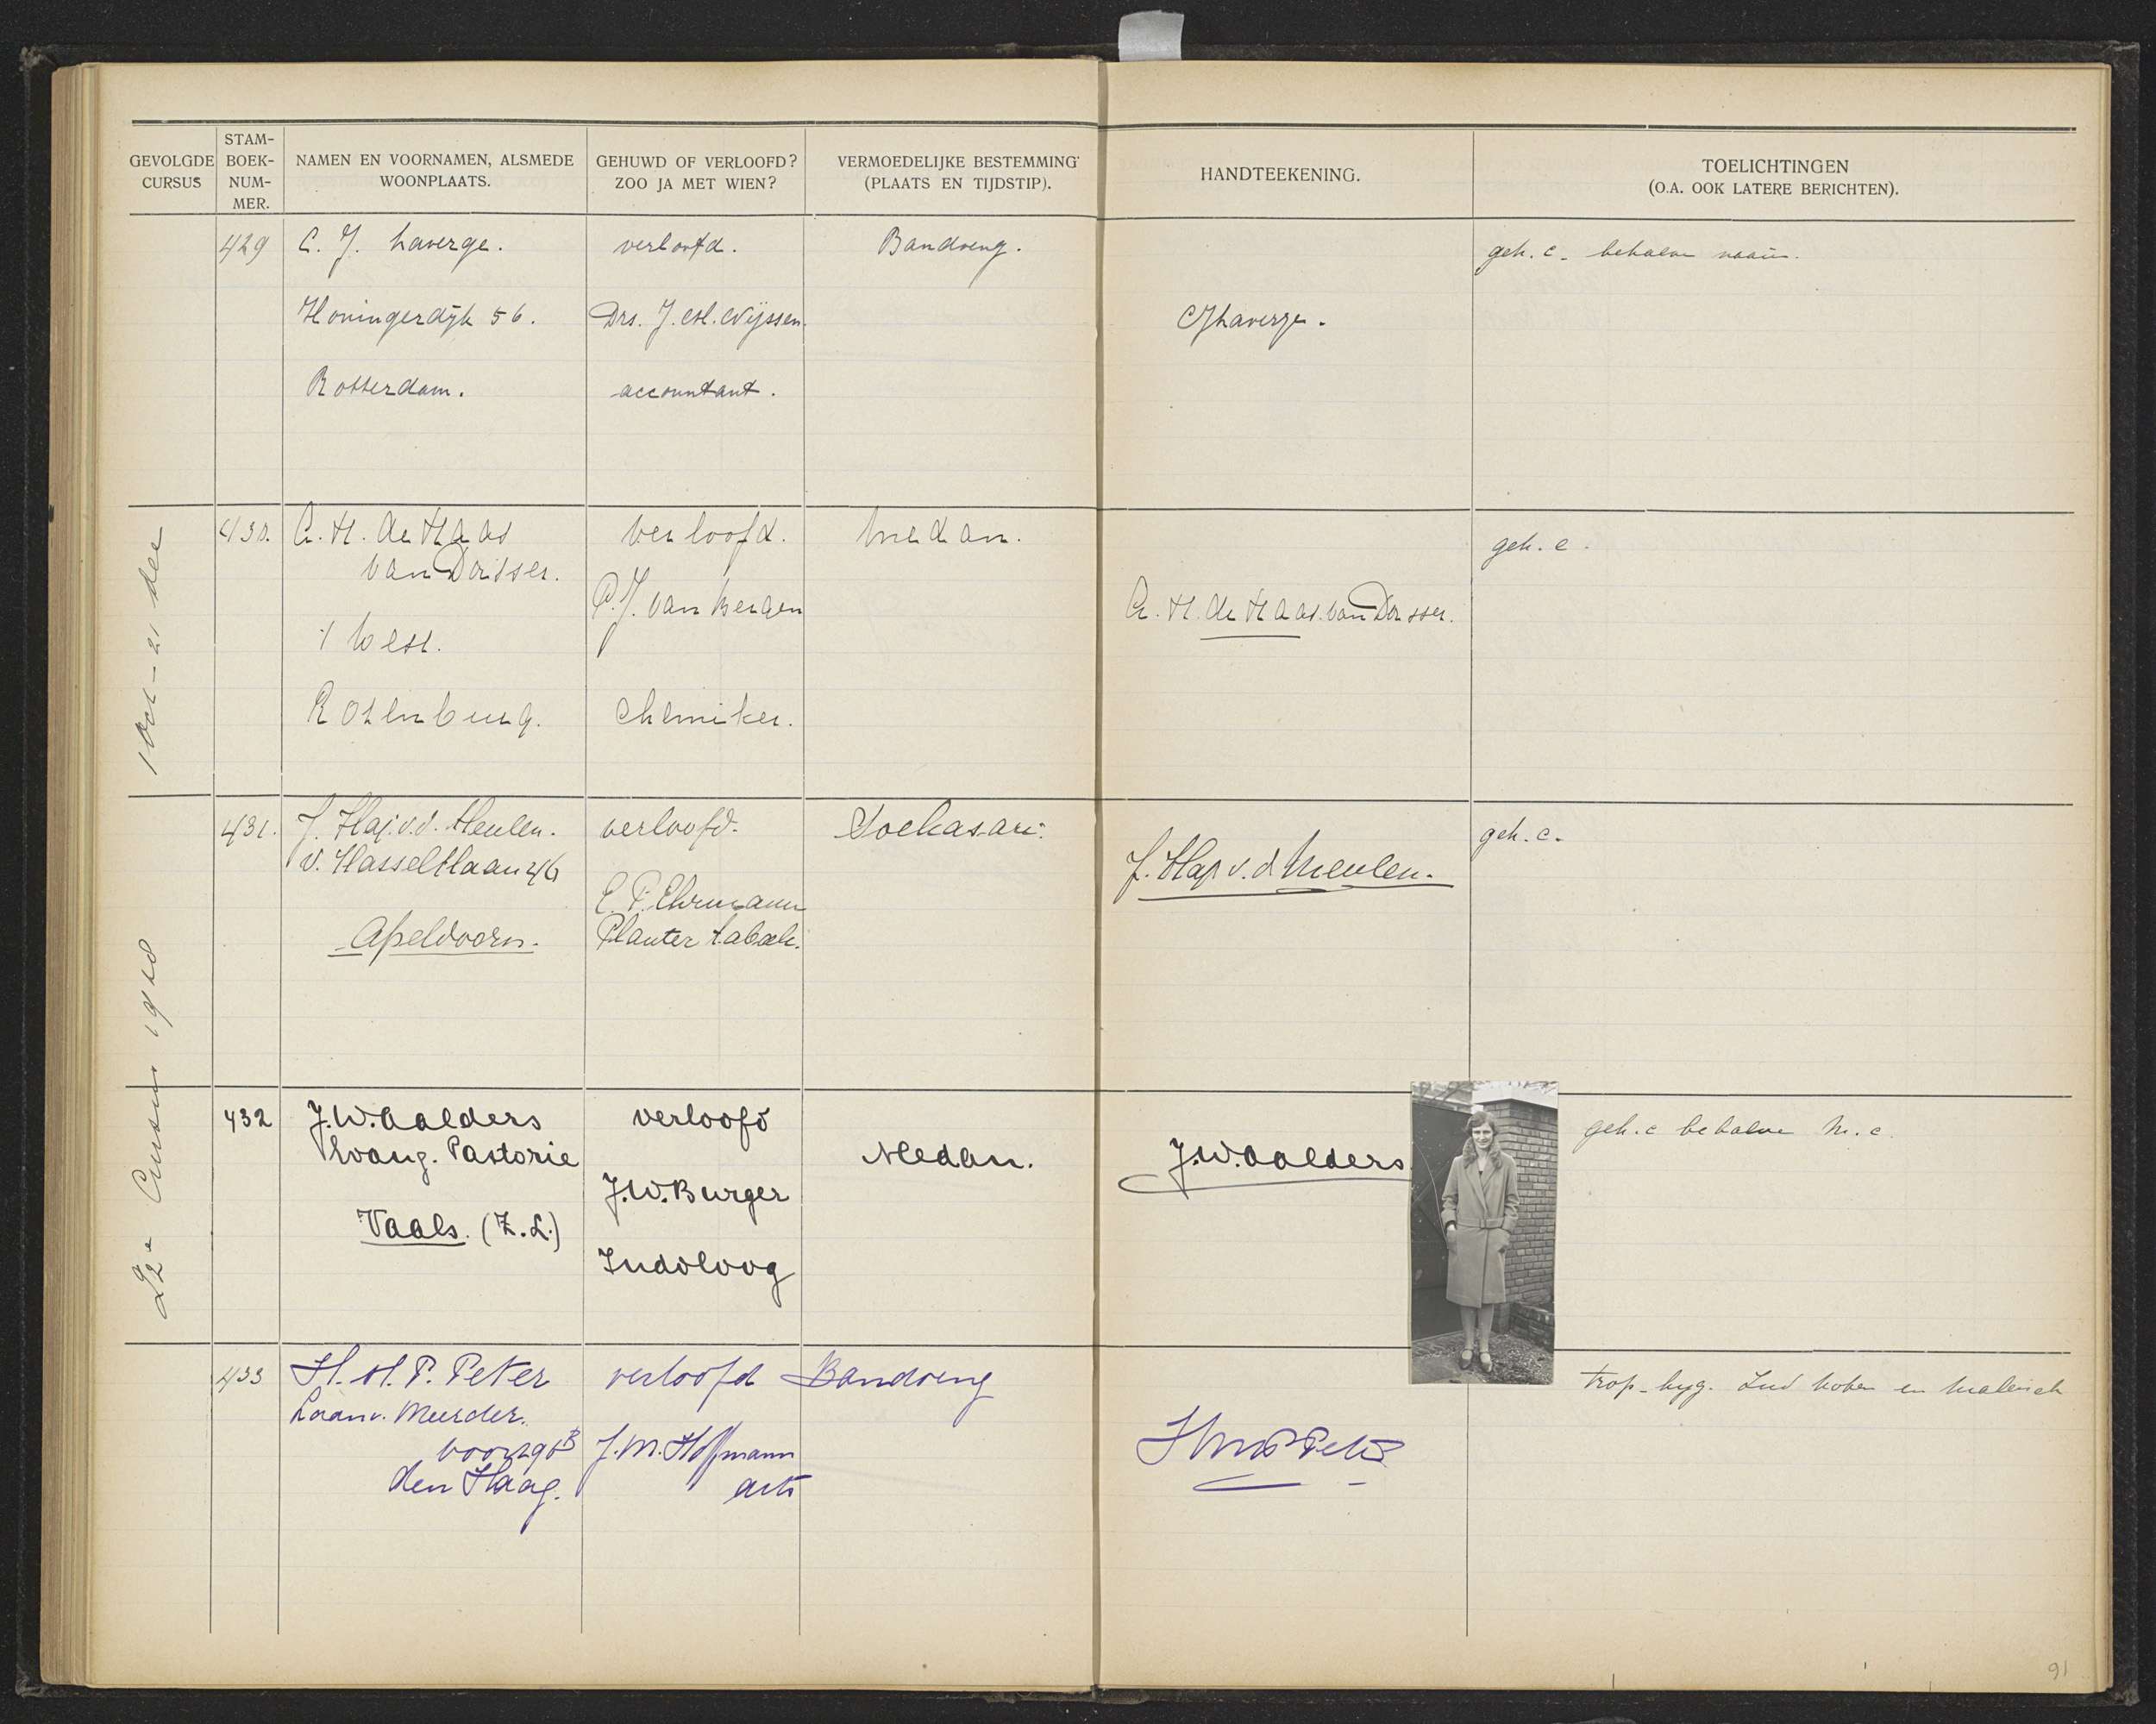 GEVOLGDE CURSUS
STAM-BOEK-NUM-MER.
NAMEN EN VOORNAMEN, ALSMEDE WOONPLAATS.
GEHUWD OF VERLOOFD? ZOO JA MET WIEN?
VERMOEDELIJKE BESTEMMING (PLAATS EN TIJDSTIP).
HANDTEEKENING.
TOELICHTINGEN (O.A. OOK LATERE BERICHTEN).
2e Cursus 1928 1 Oct - 21 dec
429
C. J. Laverge.
Honingerdijk 56.
Rotterdam.
verloofd.
Drs. J. M. Nijssen.
accountant.
Bandoeng.
CJLaverge.
geh. c. behalve
430.
C. H. de Haas
van Dorsser.
Rozenburg.
verloofd.
P. J. van Bergen
Chemiker.
Medan.
C. H. de Haas. van Dorsser.
geh. c.
431.
J. Hap. v. d. Meulen.
v. Hasseltlaan 46
Apeldoorn.
verloofd.
E. P. Ehrmann
Planter tabak.
Soekasari.
J. Hap v. d Meulen.
geh. c.
432
J.W. Aalders
Evang. Pastorie
Vaals. (Z.L.)
verloofd
J.W. Burger
Indoloog
Medan.
J.W. Aalders
geh. c behalve M. c.
433
H. M. P. Peter
Laan v. Meerder.
voort 290B
den Haag.
verloofd
J. M. Hoffmann
arts
Bandoeng
HMPPeter
trop. hyg. Ind koken en Maleisch
91